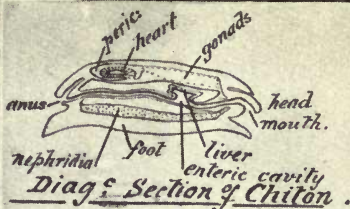 perics
heart
gonads
anus
head
mouth.
nephridia
foot
liver
enteric cavity
Diagc Section of Chiton.